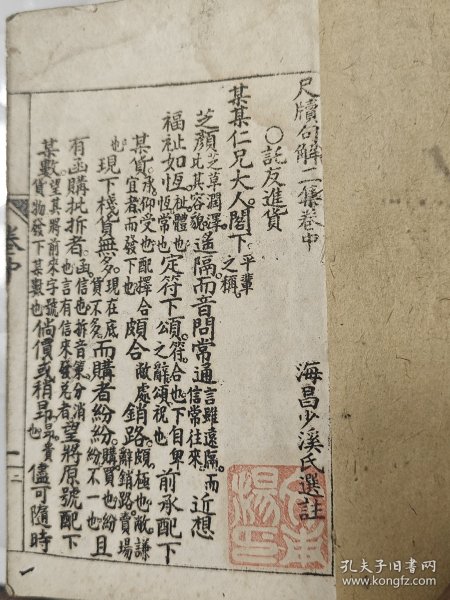 尺牘句解二集卷中
海昌少溪氏選註
〇託友進貨
某某仁兄大人閣下平輩之稱
芝顏芝草潤澤比其容貌遙隔而音問常通言雖遠隔而信常往來近想
福祉如恆祉體也恆常也定符下頌符合也下自卑之辭頌祝也前承配下
某貨承仰受也配擇合宜者而發下也頗合敝處銷路頗極也敝謙辭銷路賣場也
現下棧貨無多現在底貨不多而購者紛紛購買也紛紛不一也且
有函購批拆者函信也拆音策分消也言有信來發兌者望將原號配下
某數望其將前來字號貨物發下某數也倘價或稍昂昂貴也儘可隨時
卷中
一
孔夫子旧书网
book.kongfz.com